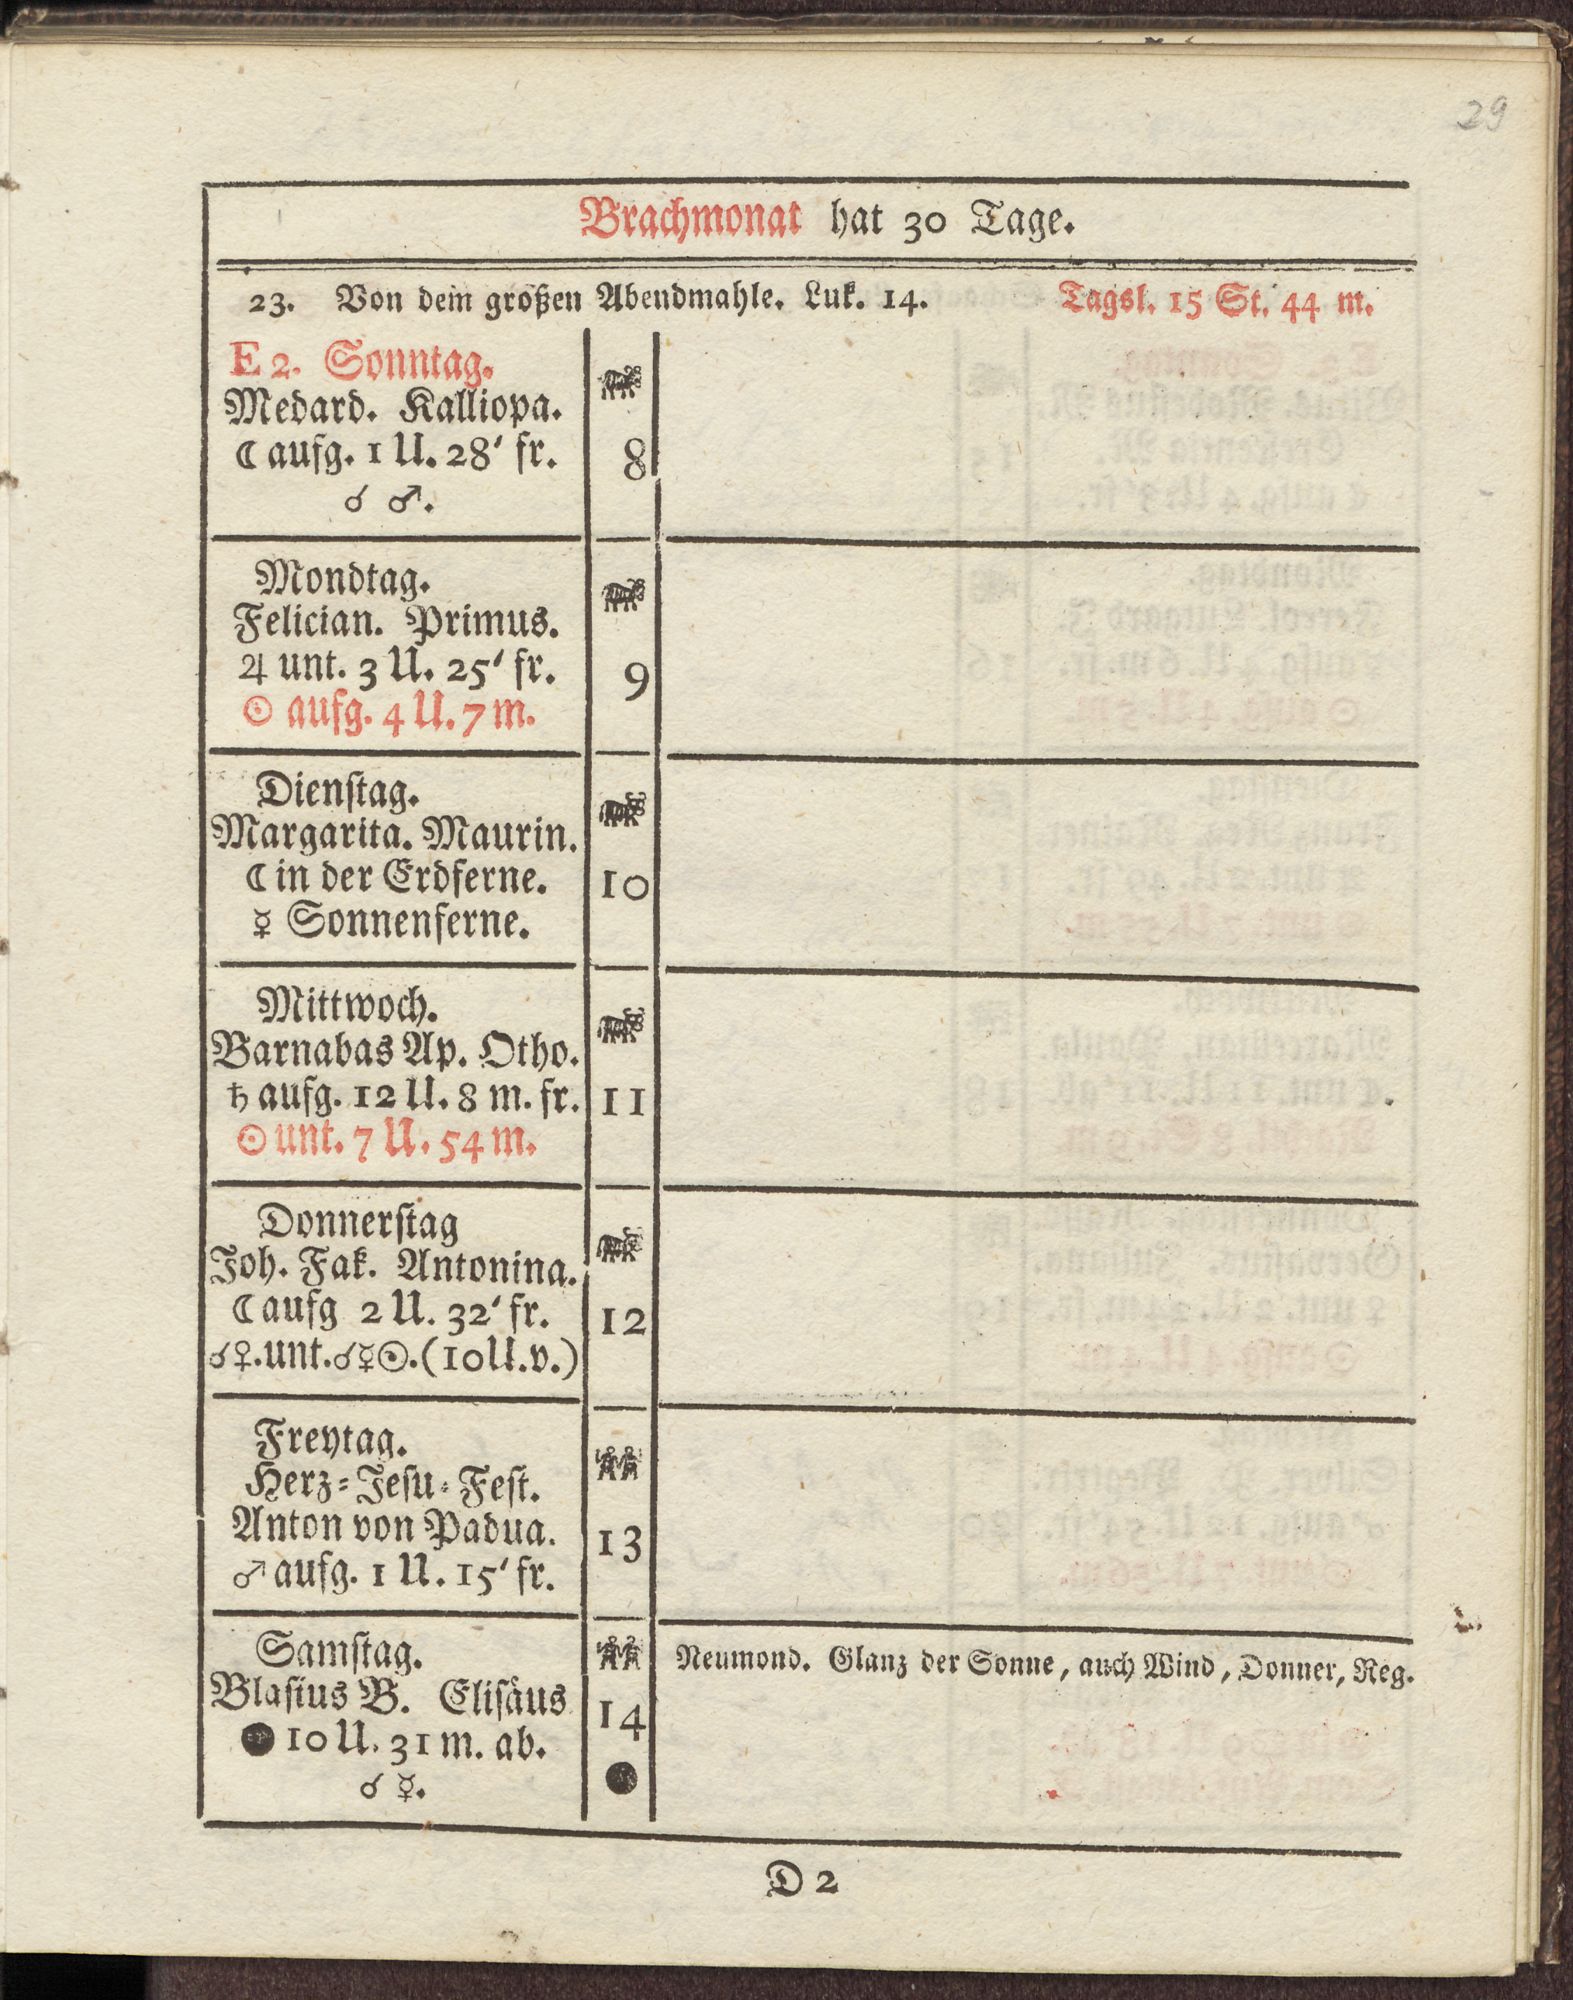 29
Brachmonat hat 30 Tage.
23. Von dem großen Abendmahle. Luk. 14. Tagsl. 15 St. 44 m.
E 2. Sonntag.
Medard. Kalliopa.
☾ aufg. 1 U. 28' fr.
☌ ♂.
8
Mondtag.
Felician. Primus.
♃ unt. 3 U. 25' fr.
☉ aufg. 4 U. 7 m.
9
Dienſtag.
Margarita. Maurin.
☾ in der Erdferne.
☿ Sonnenferne.
10
Mittwoch.
Barnabas Ap. Otho.
♄ aufg. 12 U. 8 m. fr.
☉ unt. 7 U. 54 m.
11
Donnerſtag
Joh. Fak. Antonina.
☾ aufg 2 U. 32' fr.
☌♀.unt.☌☿☉.(10U.v.)
12
Freytag.
Herz-Jeſu-Feſt.
Anton von Padua.
♂ aufg. 1 U. 15' fr.
13
Samſtag.
Blaſius B. Eliſäus
● 10 U. 31 m. ab.
☌ ☿.
14
●
Neumond. Glanz der Sonne, auch Wind, Donner, Reg.
D 2